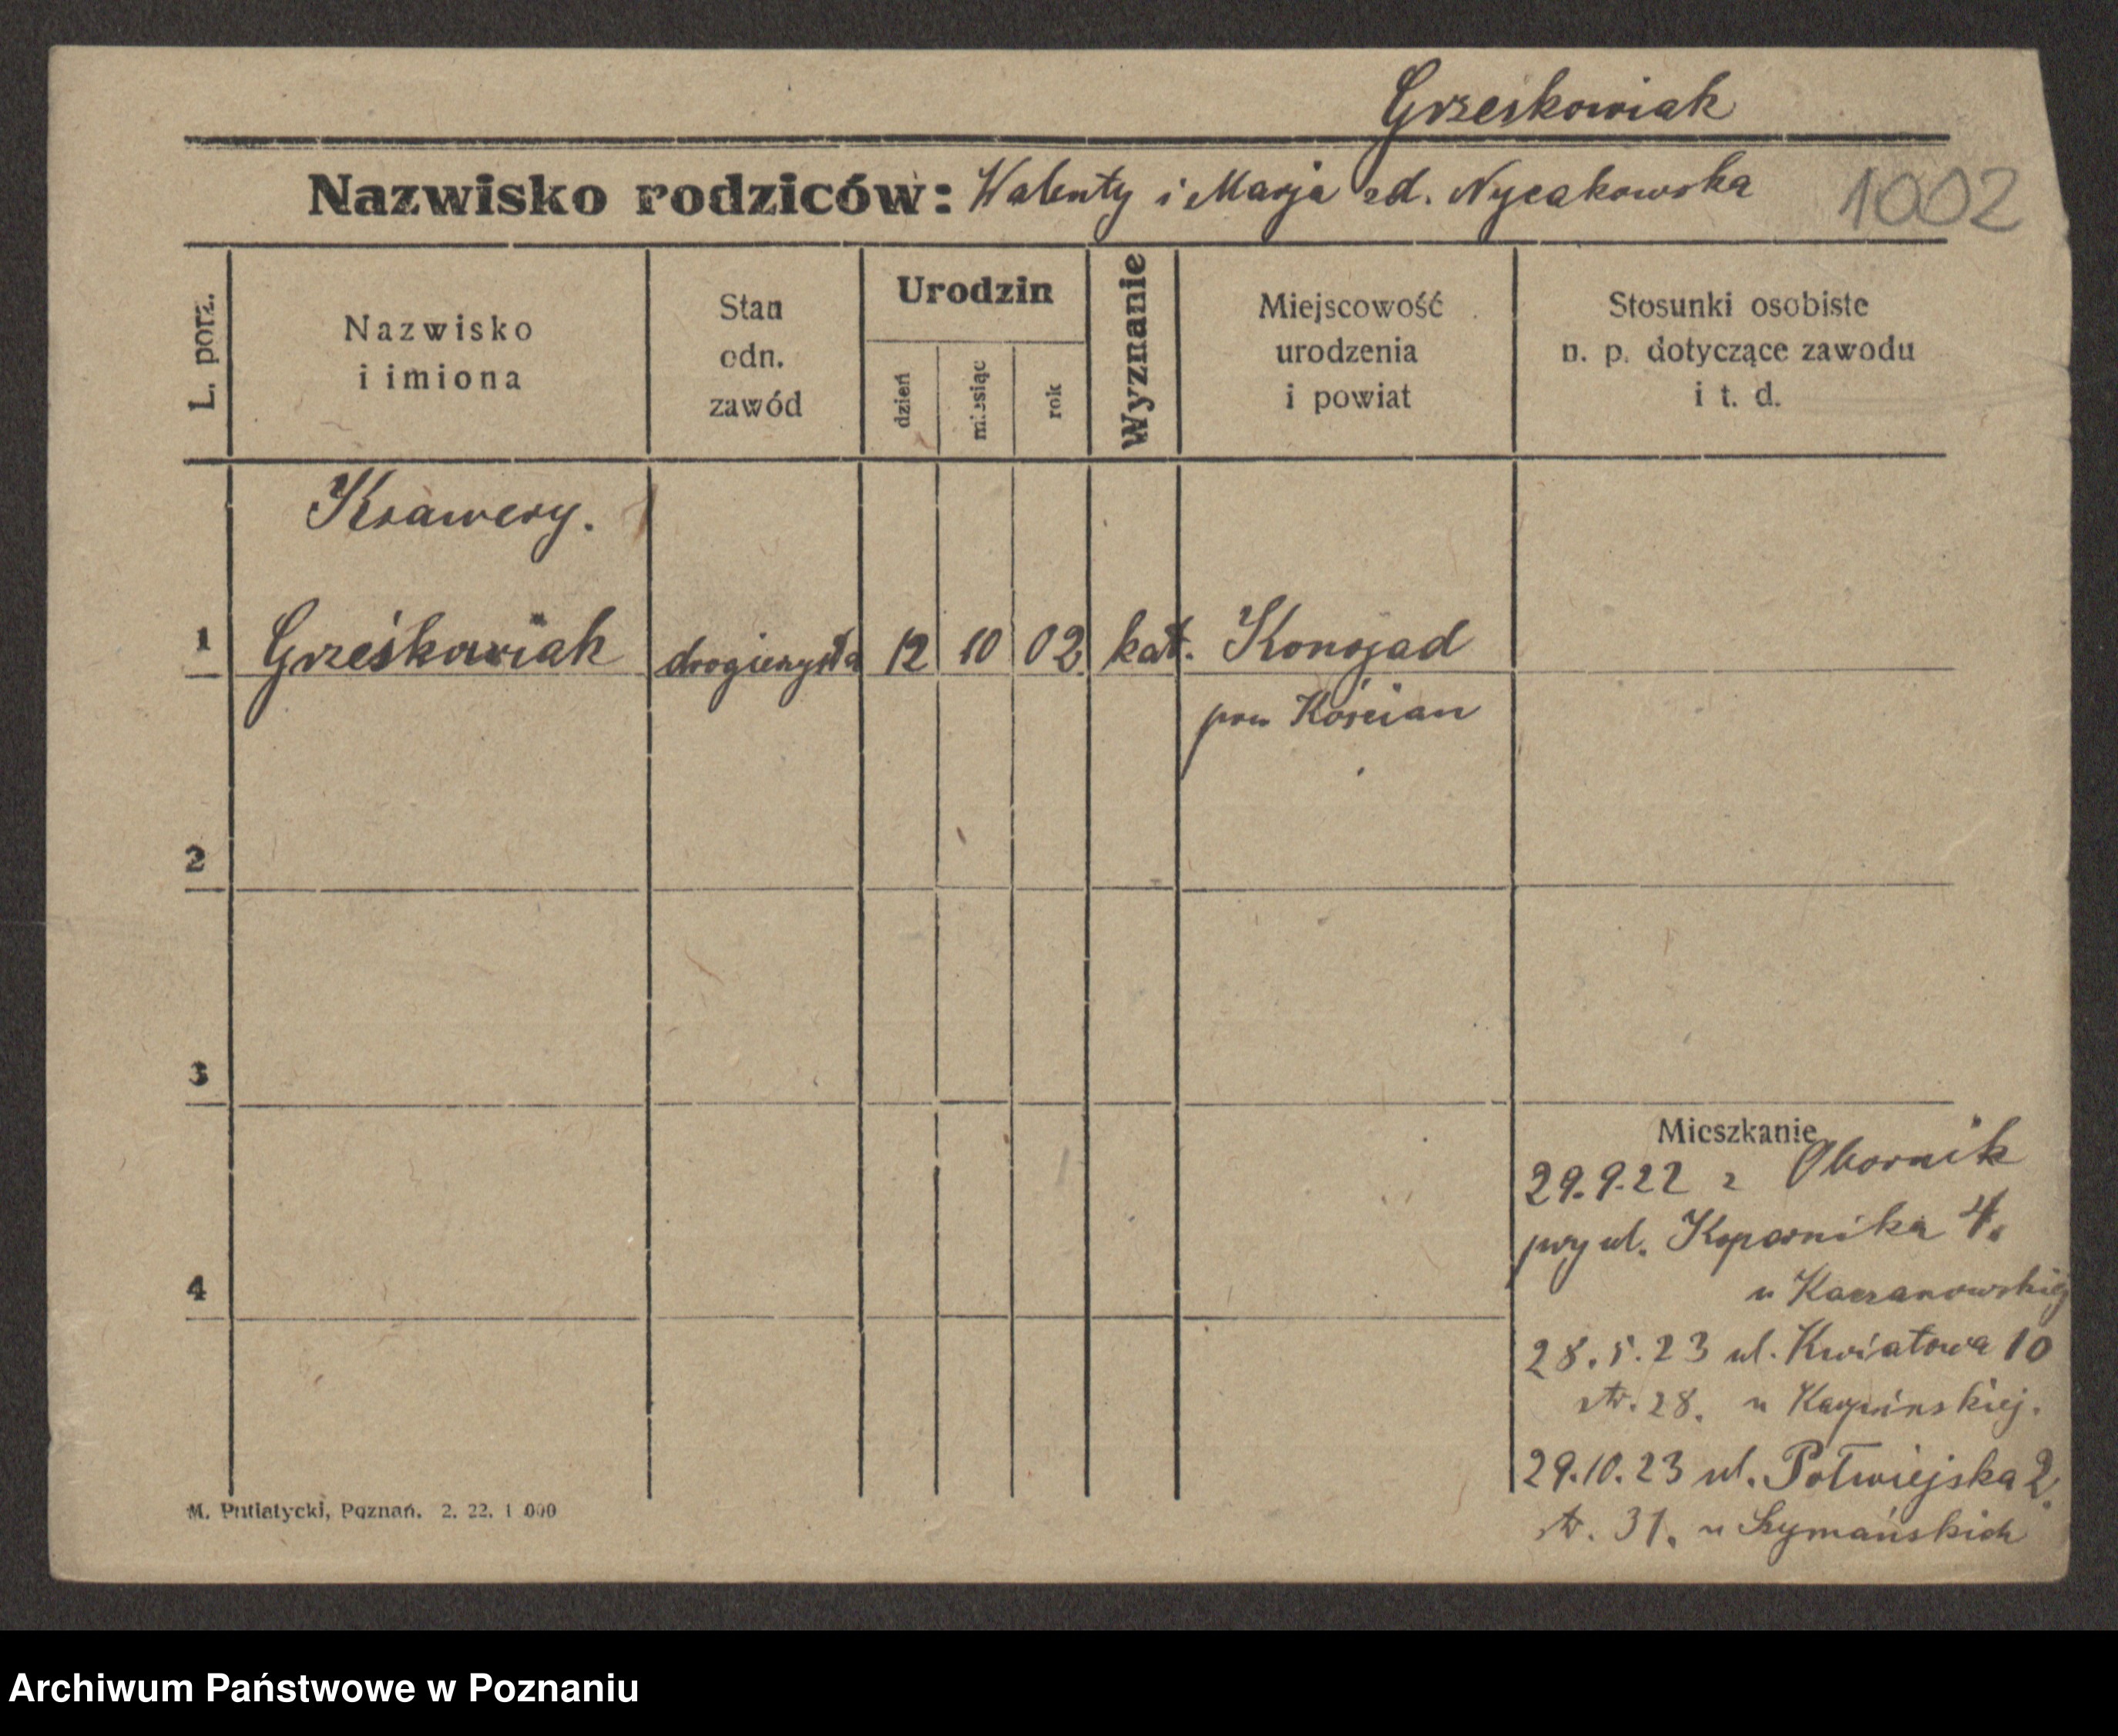 Grześkowiak
Nazwisko rodziców: Walenty i Marja zd. Nyczkowska
1002
L. porz.
Nazwisko
i imiona
Stan
odn.
zawód
Urodzin
dzień
miesiąc
rok
Wyznanie
Miejscowość
urodzenia
i powiat
Stosunki osobiste
n. p. dotyczące zawodu
i t. d.
Ksawery.
1 Grześkowiak drogierzysta 12 10 02 kat. Konojad
pow Kościan
2
3
4
Mieszkanie
29.9.22 z Obornik
przy ul. Kopernika 4.
u Kaczanowskiej
28.5.23 ul. Kwiatowa 10
tr. 28. u Karpińskiej.
29.10.23 ul. Półwiejska 2.
tr. 31. u Szymańskich
M. Putiatycki, Poznań. 2. 22. 1 000
Archiwum Państwowe w Poznaniu